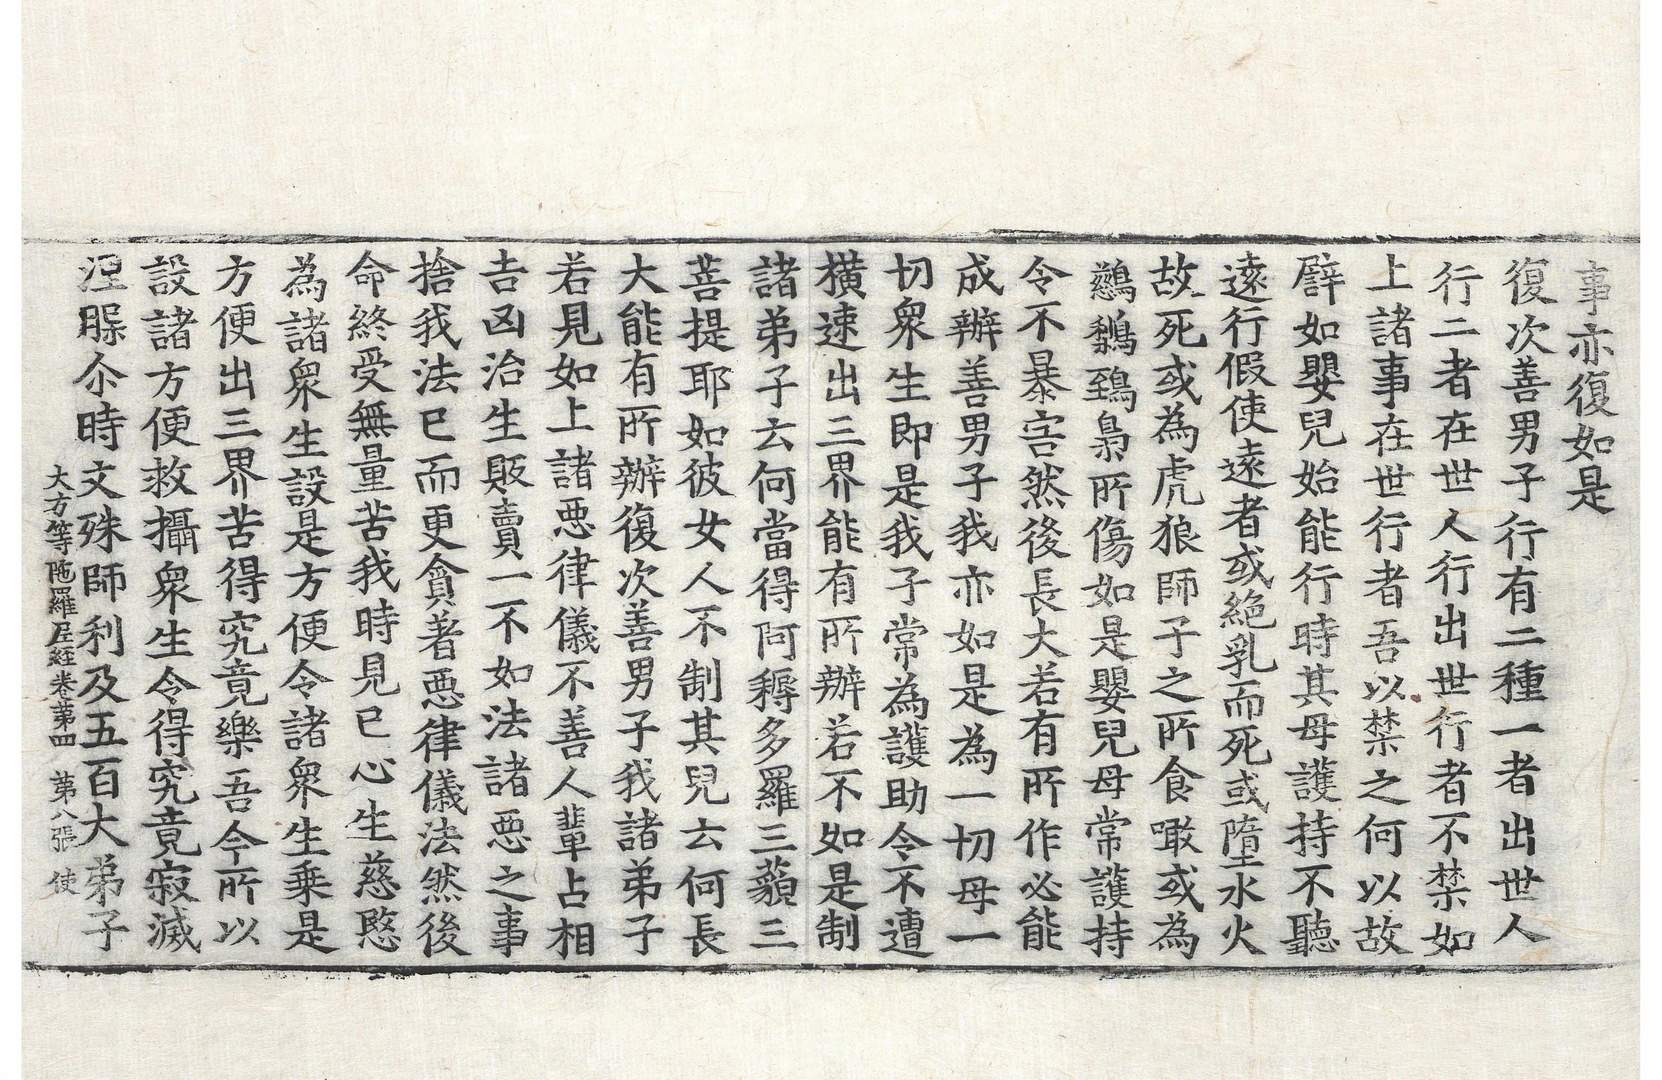 事亦復如是
復次善男子行有二種一者出世人
行二者在世人行出世行者不禁如
上諸事在世行者吾以禁之何以故
譬如嬰兒始能行時其母護持不聽
遠行假使遠者或絕乳而死或墮水火
故死或為虎狼師子之所食噉或為
鷀鷜鵄梟所傷如是嬰兒母常護持
令不暴害然後長大若有所作必能
成辦善男子我亦如是為一切母一
切衆生即是我子常為護助令不遭
橫速出三界能有所辦若不如是制
諸弟子云何當得阿耨多羅三藐三
菩提耶如彼女人不制其兒云何長
大能有所辦復次善男子我諸弟子
若見如上諸惡律儀不善人輩占相
吉凶治生販賣一不如法諸惡之事
捨我法已而更貪著惡律儀法然後
命終受無量苦我時見已心生慈愍
為諸衆生設是方便令諸衆生乘是
方便出三界苦得究竟樂吾今所以
設諸方便救攝衆生令得究竟寂滅
涅槃尒時文殊師利及五百大弟子
大方等陁羅尼経卷第四 第八張 使